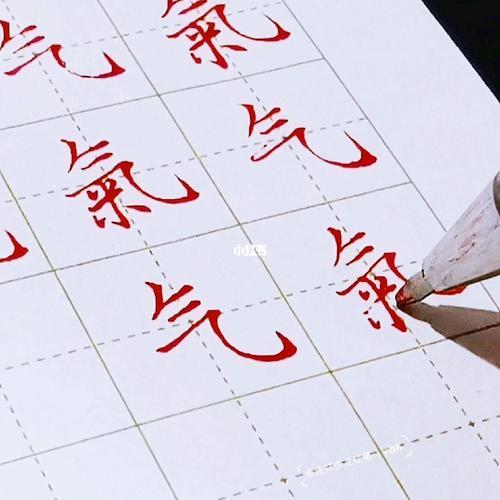 气 氣
氣 气
气 氣
小红书